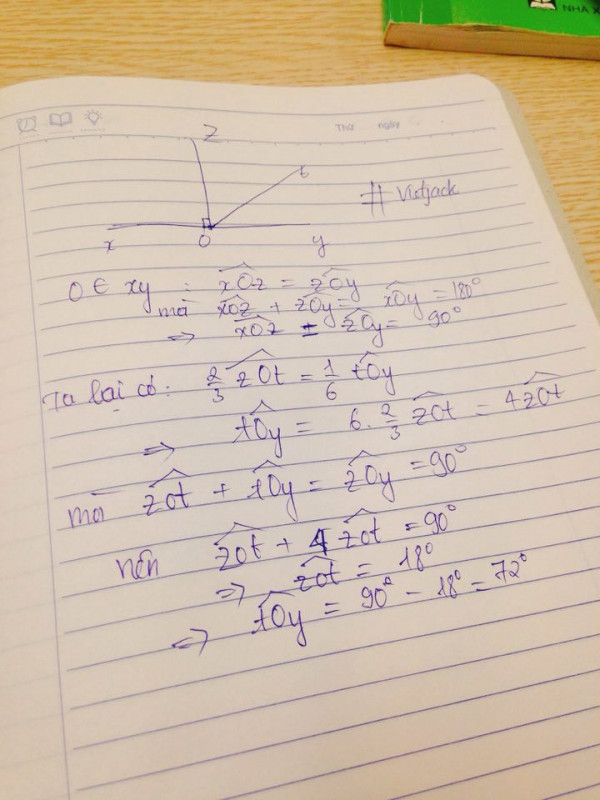 NHÀ X
Thứ ngày
z
t
# Vietjack
x O y
O ∈ xy : x̂Oz = ẑOy
mà x̂Oz + ẑOy = x̂Oy = 180°
=> x̂Oz = ẑOy = 90°
Ta lại có: 2/3 ẑOt = 1/6 t̂Oy
=> t̂Oy = 6. 2/3 ẑOt = 4ẑOt
mà ẑOt + t̂Oy = ẑOy = 90°
nên ẑOt + 4 ẑOt = 90°
=> ẑOt = 18°
=> t̂Oy = 90° - 18° = 72°